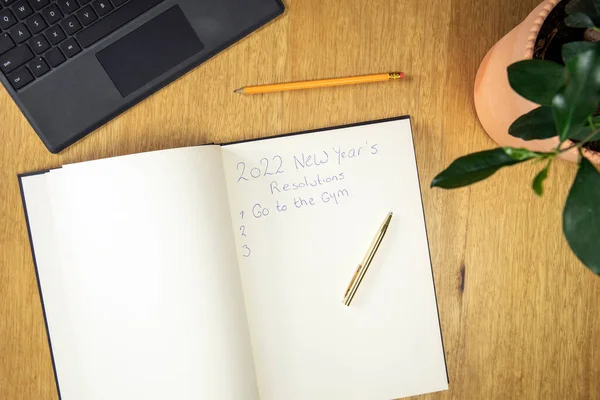 2022 New Year's
Resolutions
1 Go to the Gym
2
3